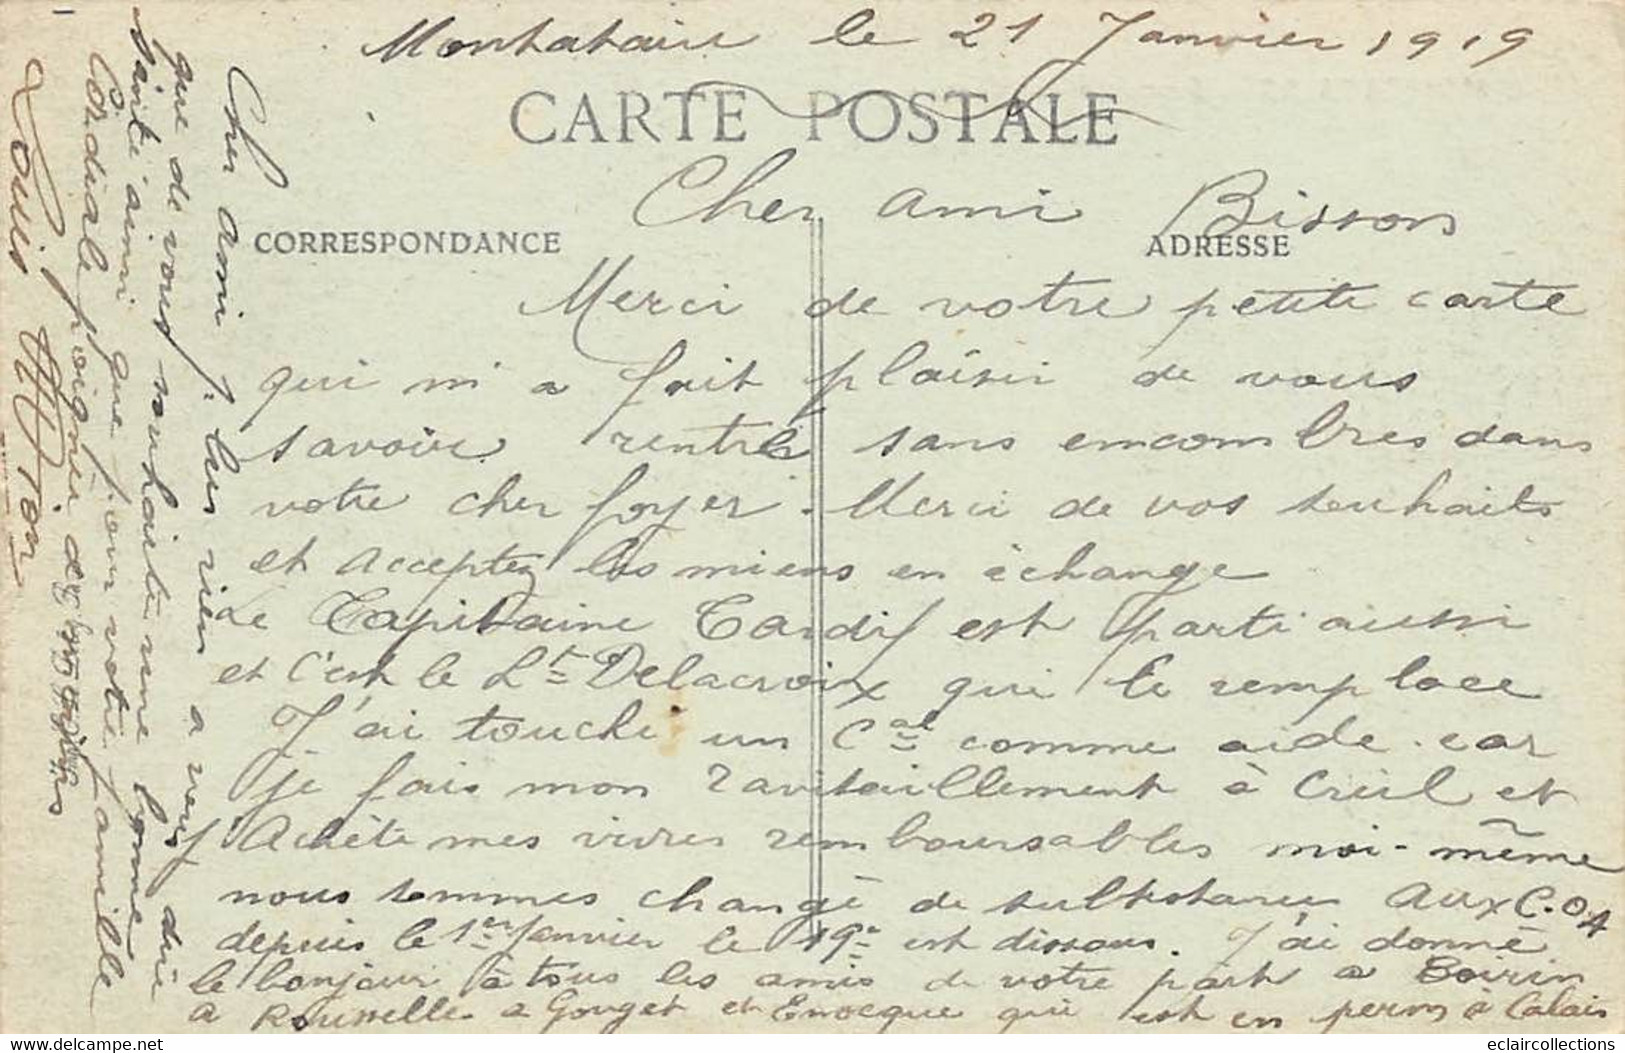 Montataire le 21 Janvier 1919
CARTE POSTALE
Cher ami Bisson
CORRESPONDANCE
ADRESSE
Merci de votre petite carte
qui m'a fait plaisir de vous
savoir rentré sans encombres dans
votre cher foyer. Merci de vos souhaits
et acceptez les miens en échange
Le Capitaine Tardif est parti aussi
et c'est le Lt Delacroix qui le remplace
J'ai touché un Cal comme aide. car
je fais mon ravitaillement à Creil et
j'achète mes vivres remboursables moi-même
nous sommes changé de subsistances aux C.O.A
depuis le 1er Janvier le 19e est dissous. J'ai donné
le bonjour à tous les amis de votre part a Boirin
a Rousselle a Gouget et Enocque qui est en perm à Calais
Cher ami plus rien a vous dire
que de vous souhaiter une bonne
Santé ainsi que pour votre famille
Cordiale poignée de
Louis
eclaircollections.com